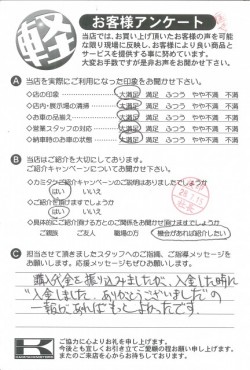 軽
お客様アンケート
当店では、お買い上げ頂いたお客様の声を可能
な限り現場に反映し、お客様により良い商品と
サービスを提供する事に努めています。
大変お手数ですが是非お声をお聞かせ下さい。
A 当店を実際にご利用になった印象をお聞かせ下さい。
◇店の印象 大満足 満足 ふつう やや不満 不満
◇店内・展示場の清掃 大満足 満足 ふつう やや不満 不満
◇お車の品揃え 大満足 満足 ふつう やや不満 不満
◇営業スタッフの対応 大満足 満足 ふつう やや不満 不満
◇納車時のお車の状態 大満足 満足 ふつう やや不満 不満
B 当店はご紹介を大切にしております。
ご紹介キャンペーンについてお聞かせ下さい。
◇カミタケご紹介キャンペーンのご説明はありましたでしょうか
はい いいえ
◇ご紹介を頂けますでしょうか
はい いいえ
◇具体的にご紹介頂ける方とのご関係をお聞かせ頂けますでしょうか
ご親族 ご友人 職場の方 機会があれば紹介したい
C 担当させて頂きましたスタッフへのご指摘、ご指導メッセージを
お願いします。応援メッセージもぜひお願いします。
購入代金を振り込みましたが、入金した時に
"入金しました。ありがとうございました"の
一報があればもっとよかったです。
K
ご協力に心よりお礼を申し上げます。
今後とも宜しくお引き立てご愛顧の程お願い申し上げます。
またのご来店を心からお待ちしております。